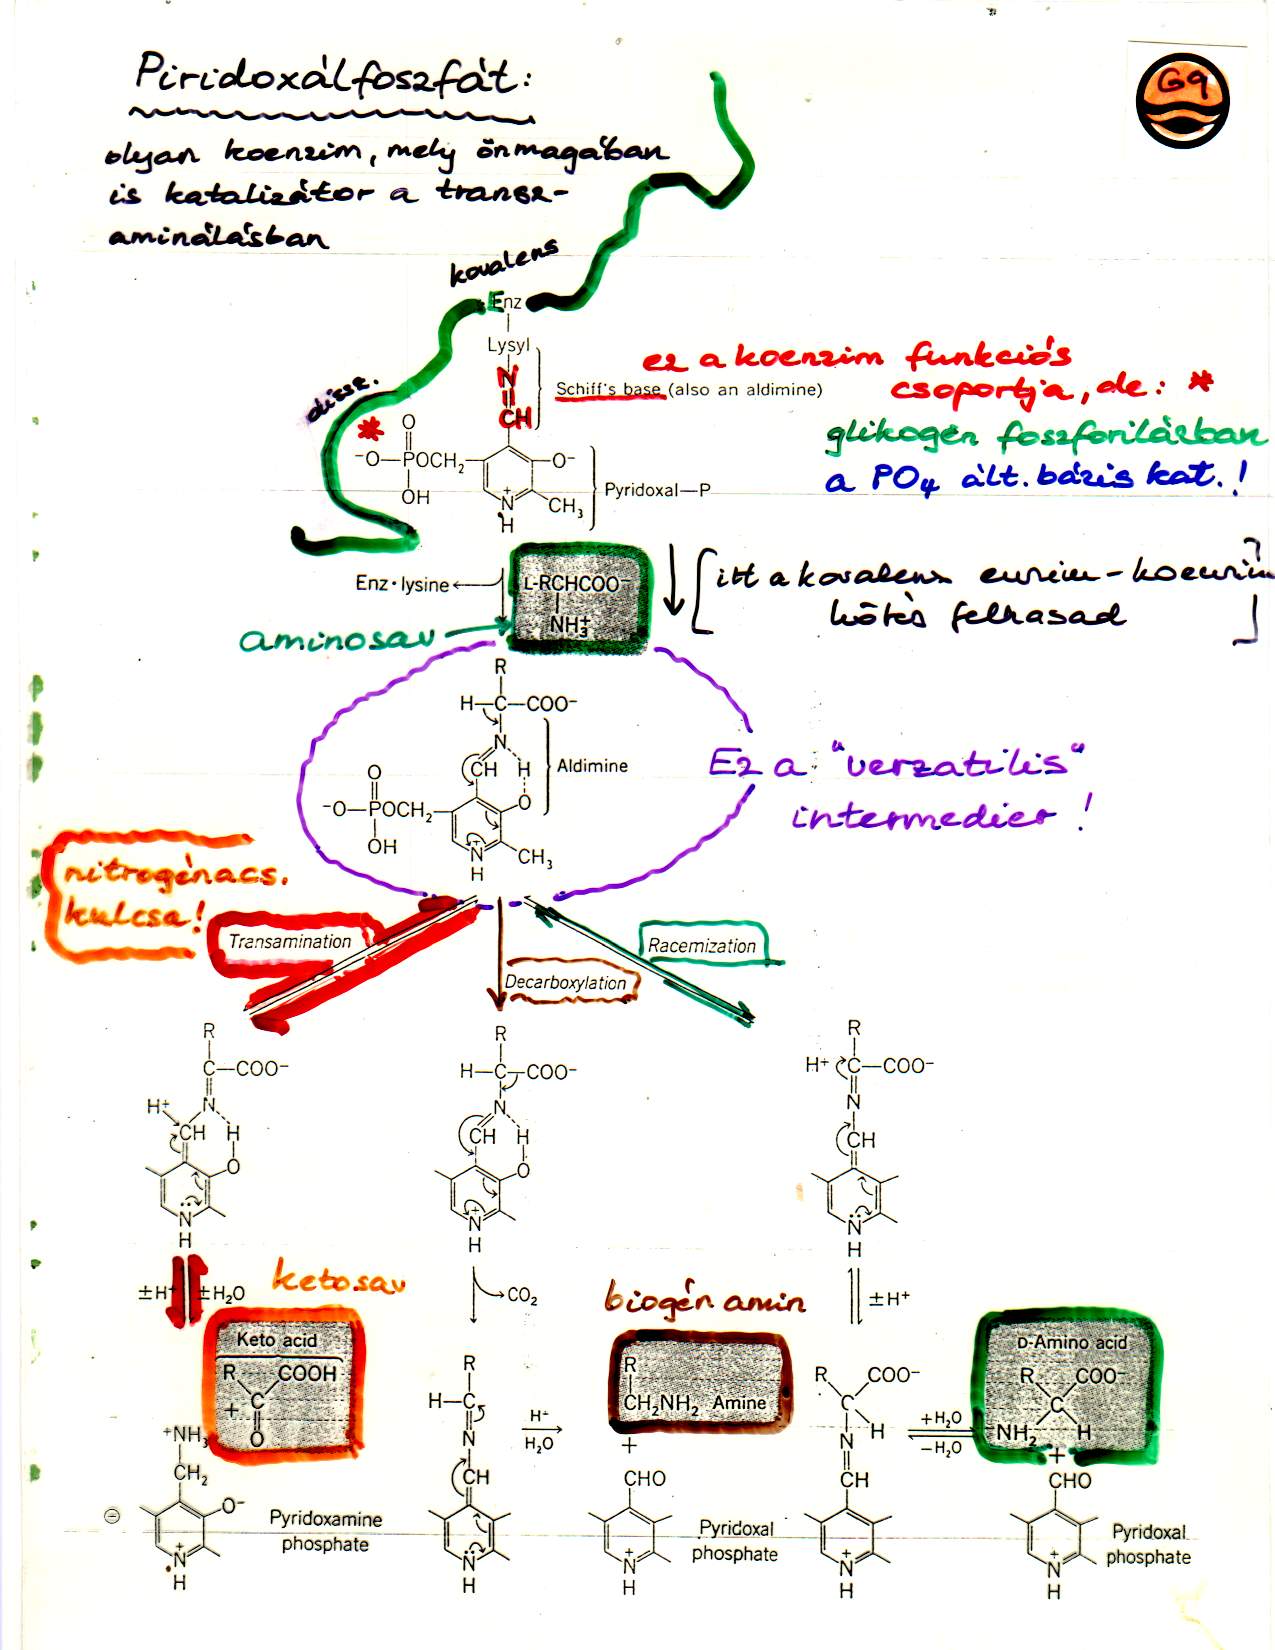 Piridoxálfoszfát:
G9
olyan koenzim, mely önmagában
is katalizátor a transz-
aminálásban
kovalens
Enz
Lysyl
N
CH
Schiff's base (also an aldimine)
ez a koenzim funkciós
csoportja, de: *
glikogén foszforilázban
a PO4 ált. bázis kat.!
dissz.
*
O
-O-P-OCH2
OH
O-
CH3
+
N
H
Pyridoxal-P
Enz·lysine
L-RCHCOO-
NH3+
aminosav
[itt a kovalens enzim-koenzim
kötés felhasad]
R
H-C-COO-
N
CH H
Aldimine
O
-O-P-OCH2
O
OH
CH3
+
N
H
Ez a "verzatilis"
intermedier!
nitrogénacs.
kulcsa!
Transamination
Decarboxylation
Racemization
R
C-COO-
N
H+
CH H
O
N
H
R
H-C-COO-
N
CH H
O
+
N
H
R
H+ C-COO-
N
CH
N
H
±H+ ±H2O
ketosav
CO2
biogén amin
±H+
Keto acid
R COOH
C
+
O
+NH3
CH2
O-
+
N
H
Pyridoxamine
phosphate
R
H-C
N
CH
N
H
H+
H2O
R
CH2NH2 Amine
+
CHO
+
N
H
Pyridoxal
phosphate
R COO-
C
H
N
CH
+
N
H
+H2O
-H2O
D-Amino acid
R COO-
C
NH2 H
+
CHO
+
N
H
Pyridoxal
phosphate